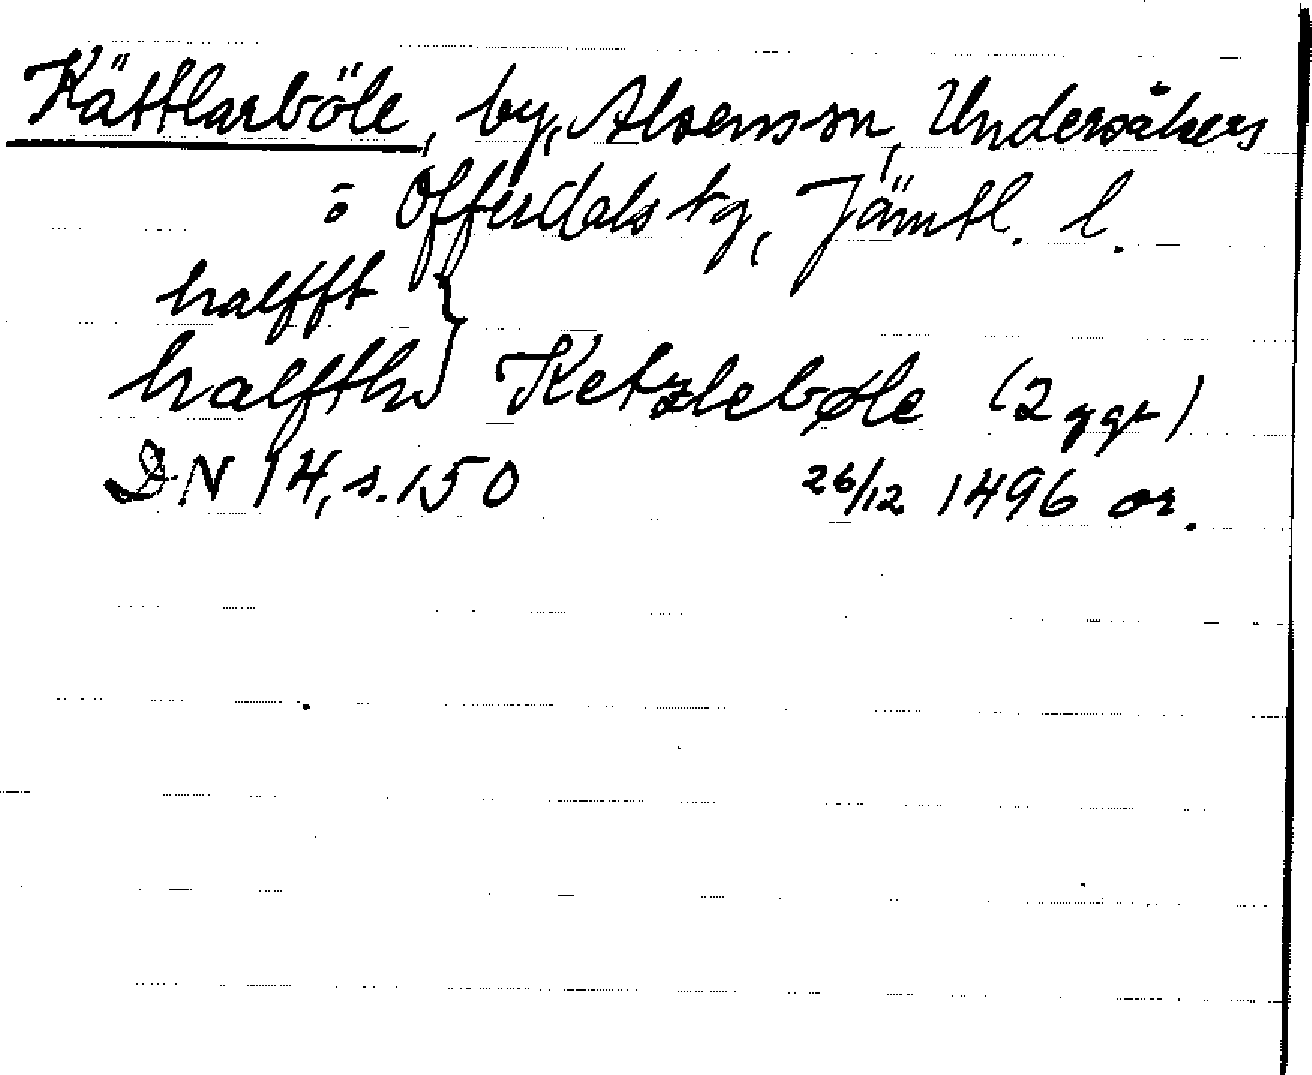 Kättlarböle, by, Alsens sn, Undersåkers
o Offerdals tg, Jämtl. l.
halfft
halffth } Ketzlebøle (2 ggr)
DN 14, s. 150 26/12 1496 or.